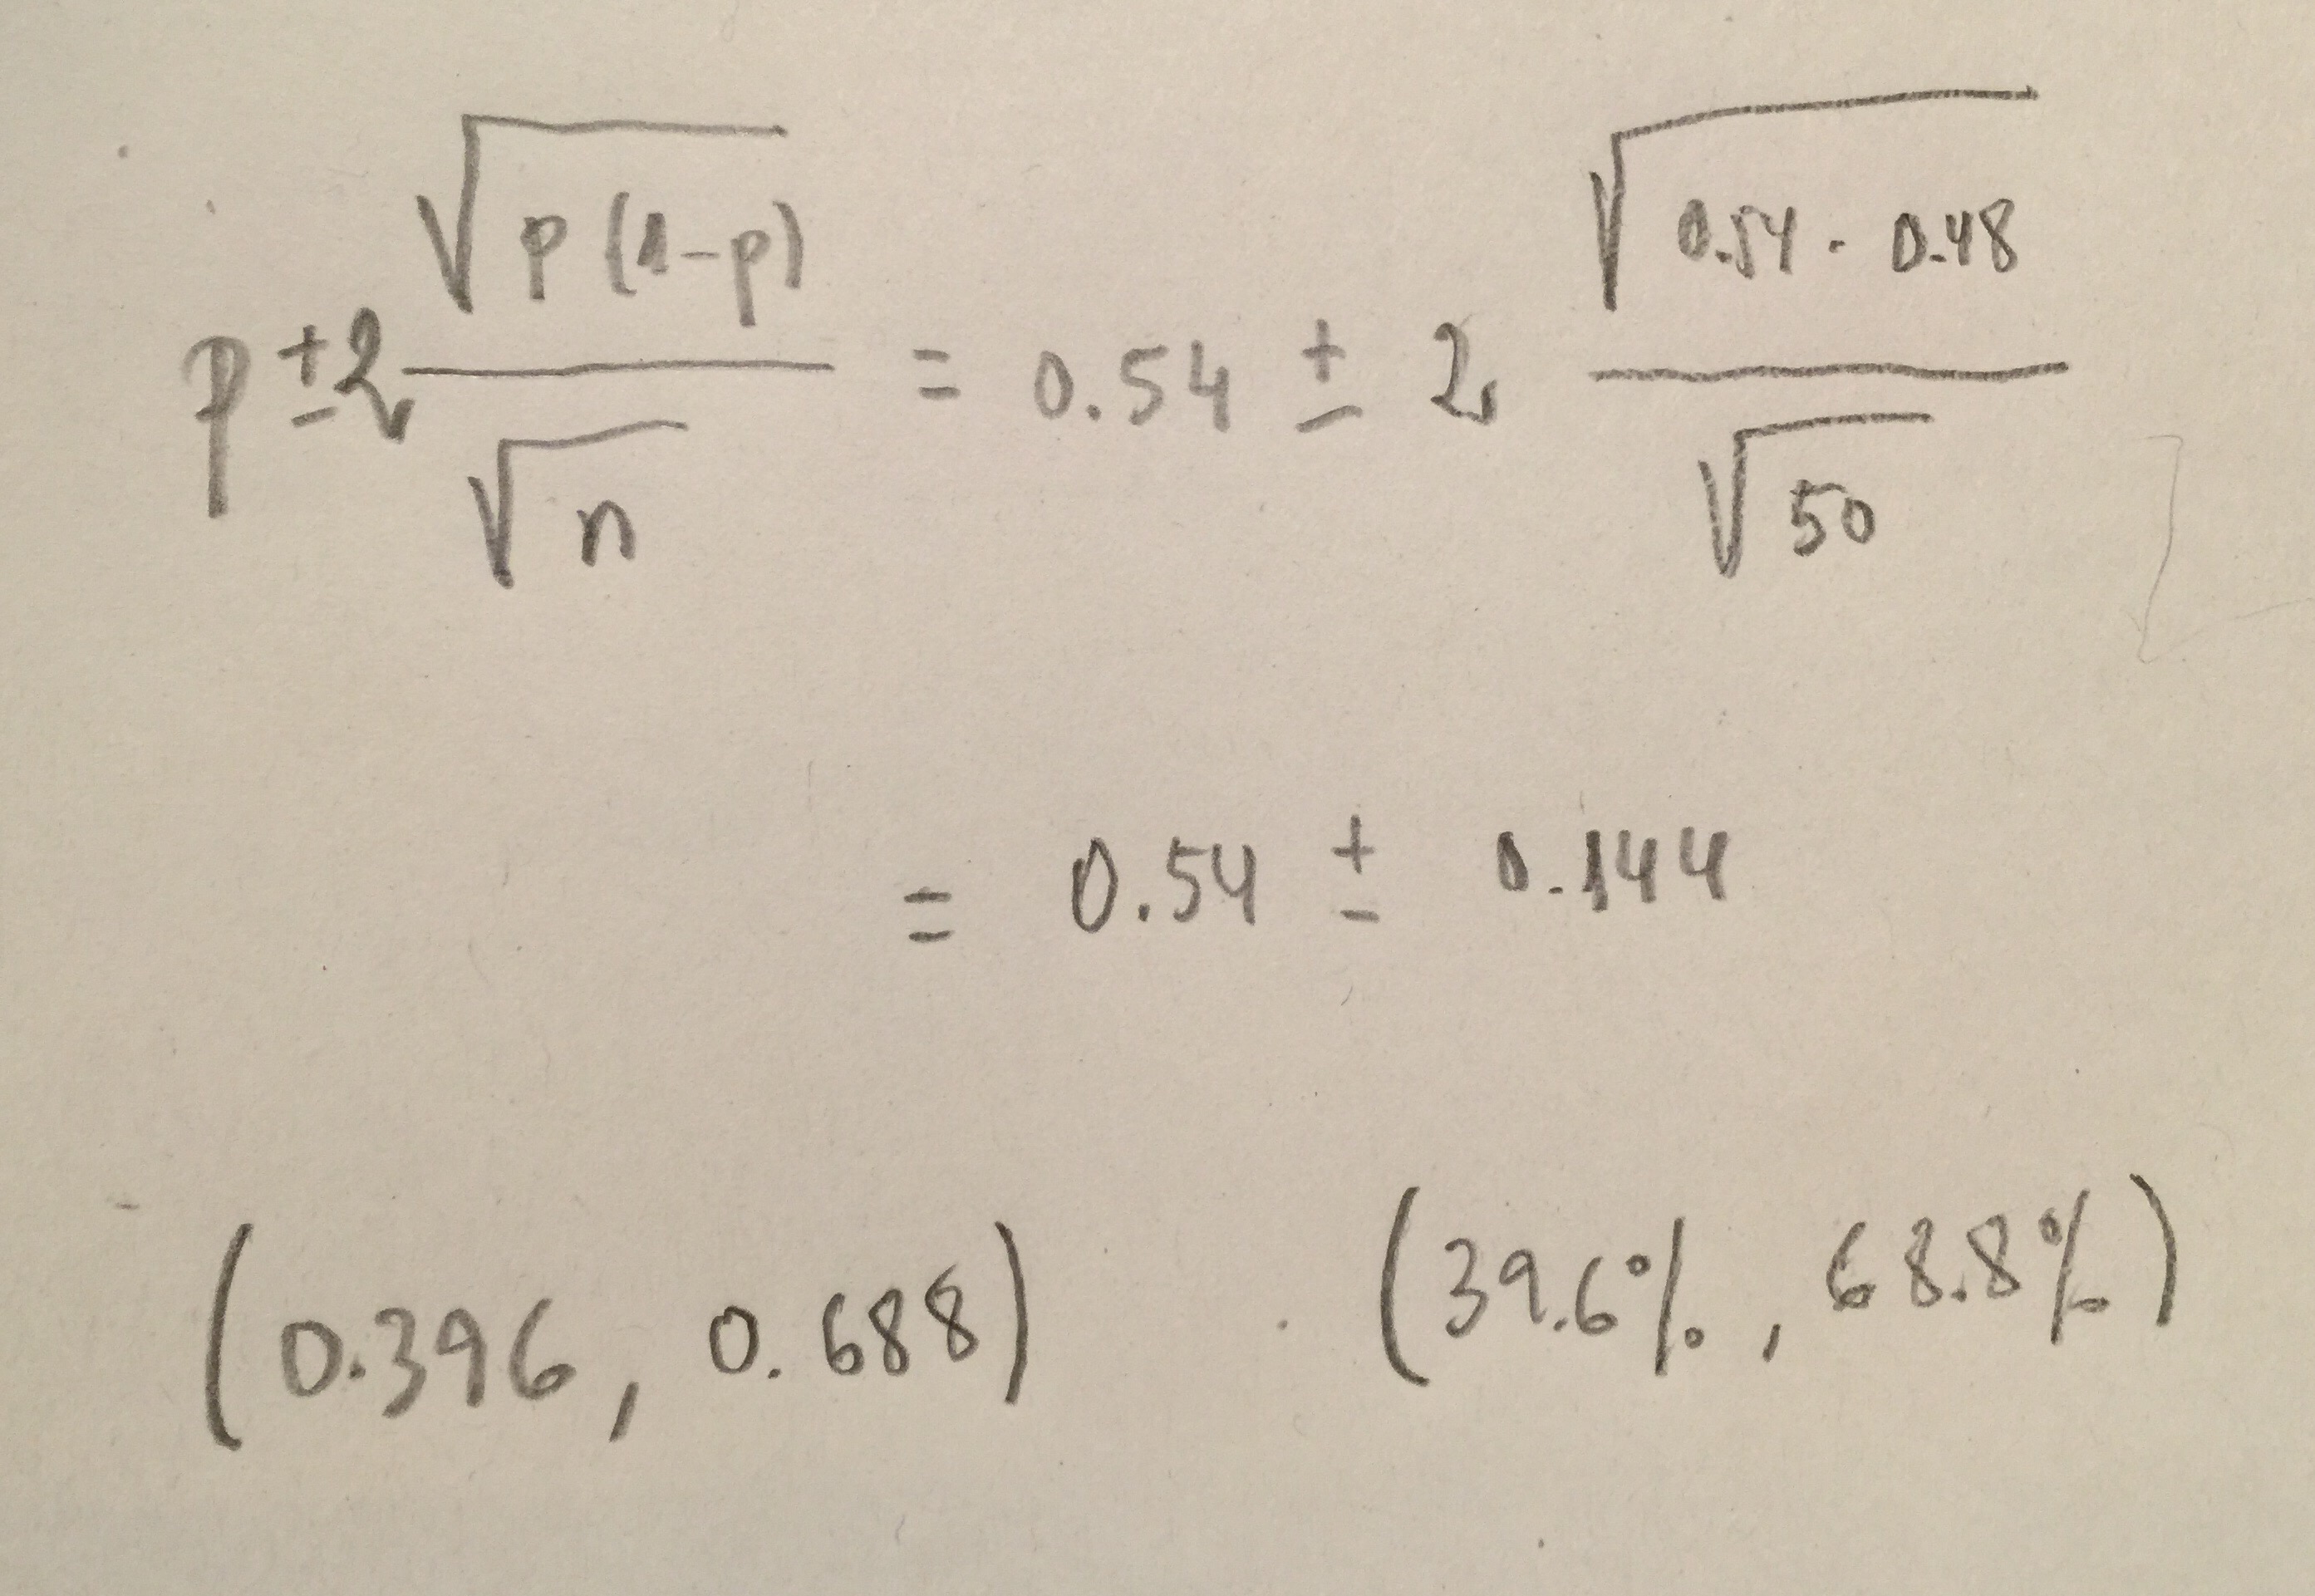 p ± 2 √(p(1-p)) / √n = 0.54 ± 2 √(0.54 · 0.48) / √50
= 0.54 ± 0.144
(0.396, 0.688) (39.6%, 68.8%)